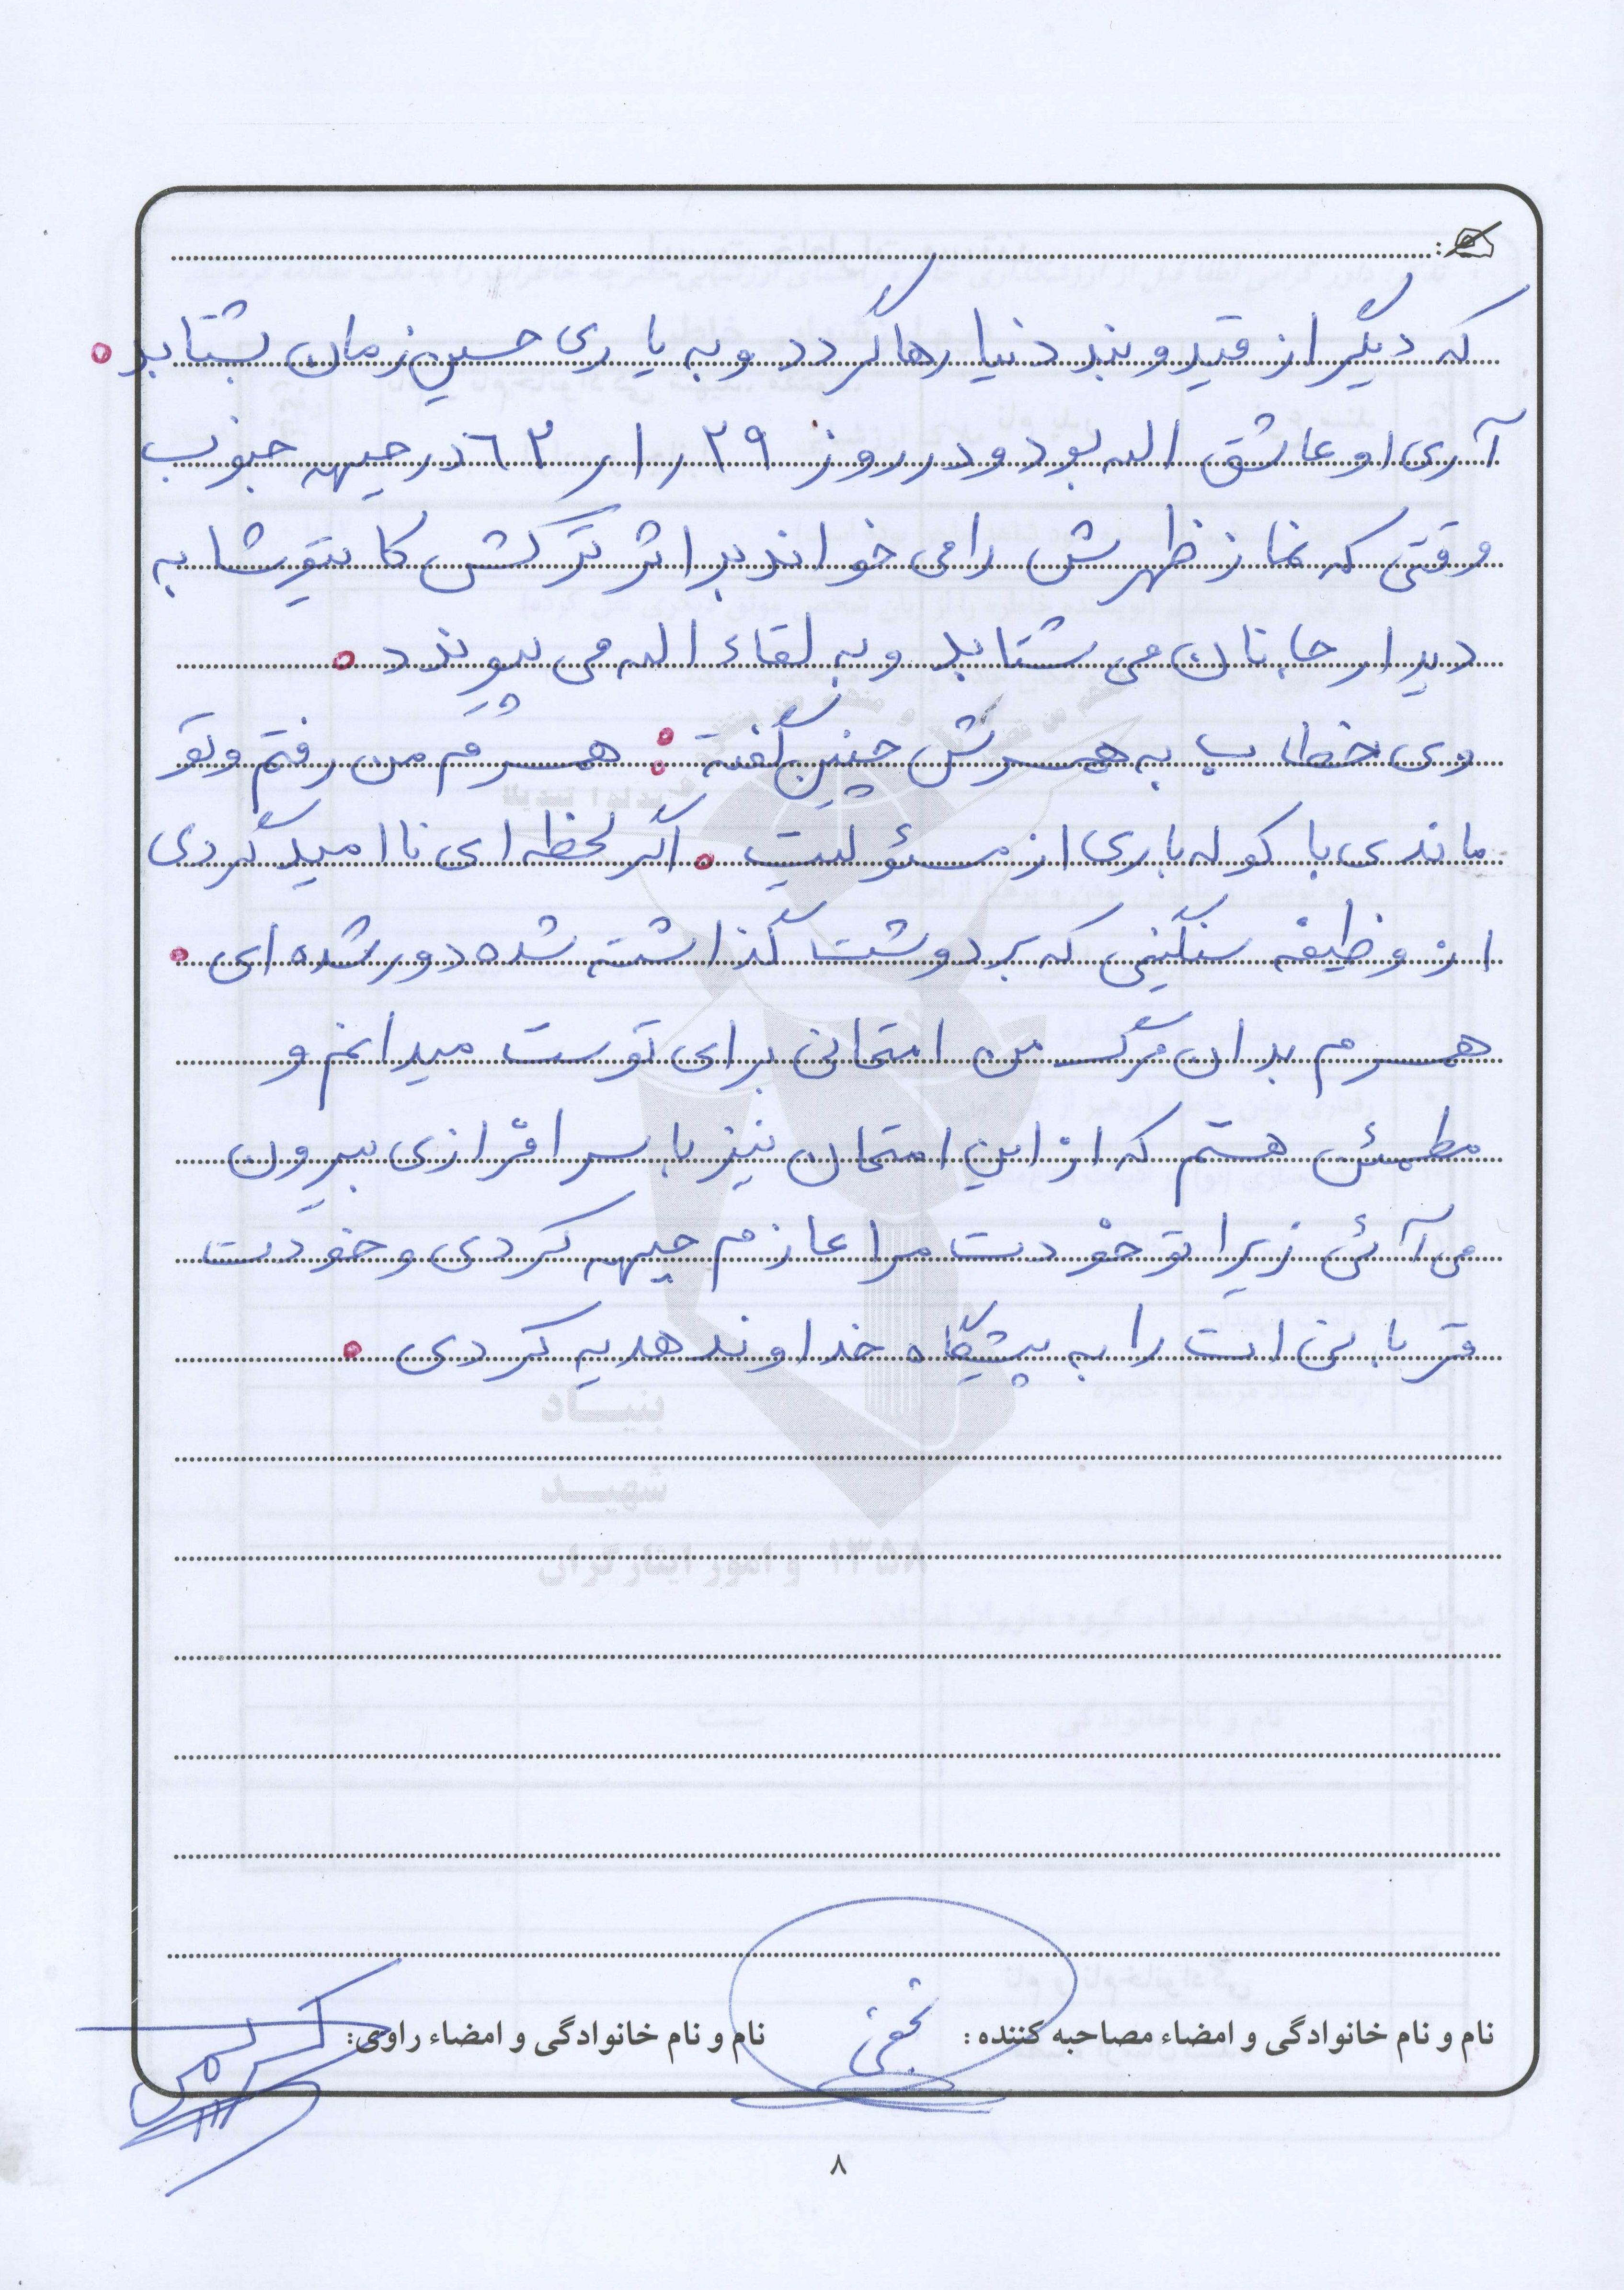 که دیگر از قید و بند دنیا رها گردد و به یاری حسین زمان بشتابد.
آری او عاشق الله بود و در روز ۲۹ ر ۱ ر ۶۲ در جبهه جنوب
وقتی که نماز ظهرش را می خواند بر اثر ترکش کاتیوشا به
دیدار جانان می شتابد و به لقاء الله می پیوندد.
وی خطاب به همسرش چنین گفته: همسرم من رفتم و تو
ماندی با کوله باری از مسئولیت. اگر لحظه ای ناامید گردی
از وظیفه سنگینی که بر دوشت گذاشته شده دور شده ای.
همسرم بدان مرگ من امتحانی برای توست میدانم و
مطمئن هستم که از این امتحان نیز با سرافرازی بیرون
می آئی زیرا تو خودت مرا عازم جبهه کردی و خودت
قربانی ات را به پیشگاه خداوند هدیه کردی.
بنیاد
شهید
و امور ایثارگران ۱۳۵۸
نام و نام خانوادگی و امضاء مصاحبه کننده: نام و نام خانوادگی و امضاء راوی:
۸